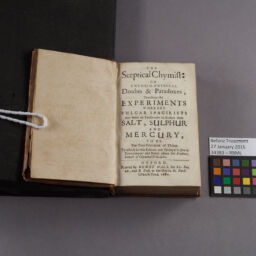 THE
Sceptical Chymist:
OR
CHYMICO-PHYSICAL
Doubts & Paradoxes,
Touching the
EXPERIMENTS
WHEREBY
VULGAR SPAGIRISTS
Are wont to Endeavour to Evince their
SALT, SULPHUR
AND
MERCURY,
TO BE
The True Principles of Things.
To which in this Edition are
OXFORD,
Printed by HENRY HALL for
Before Treatment
27 January 2015